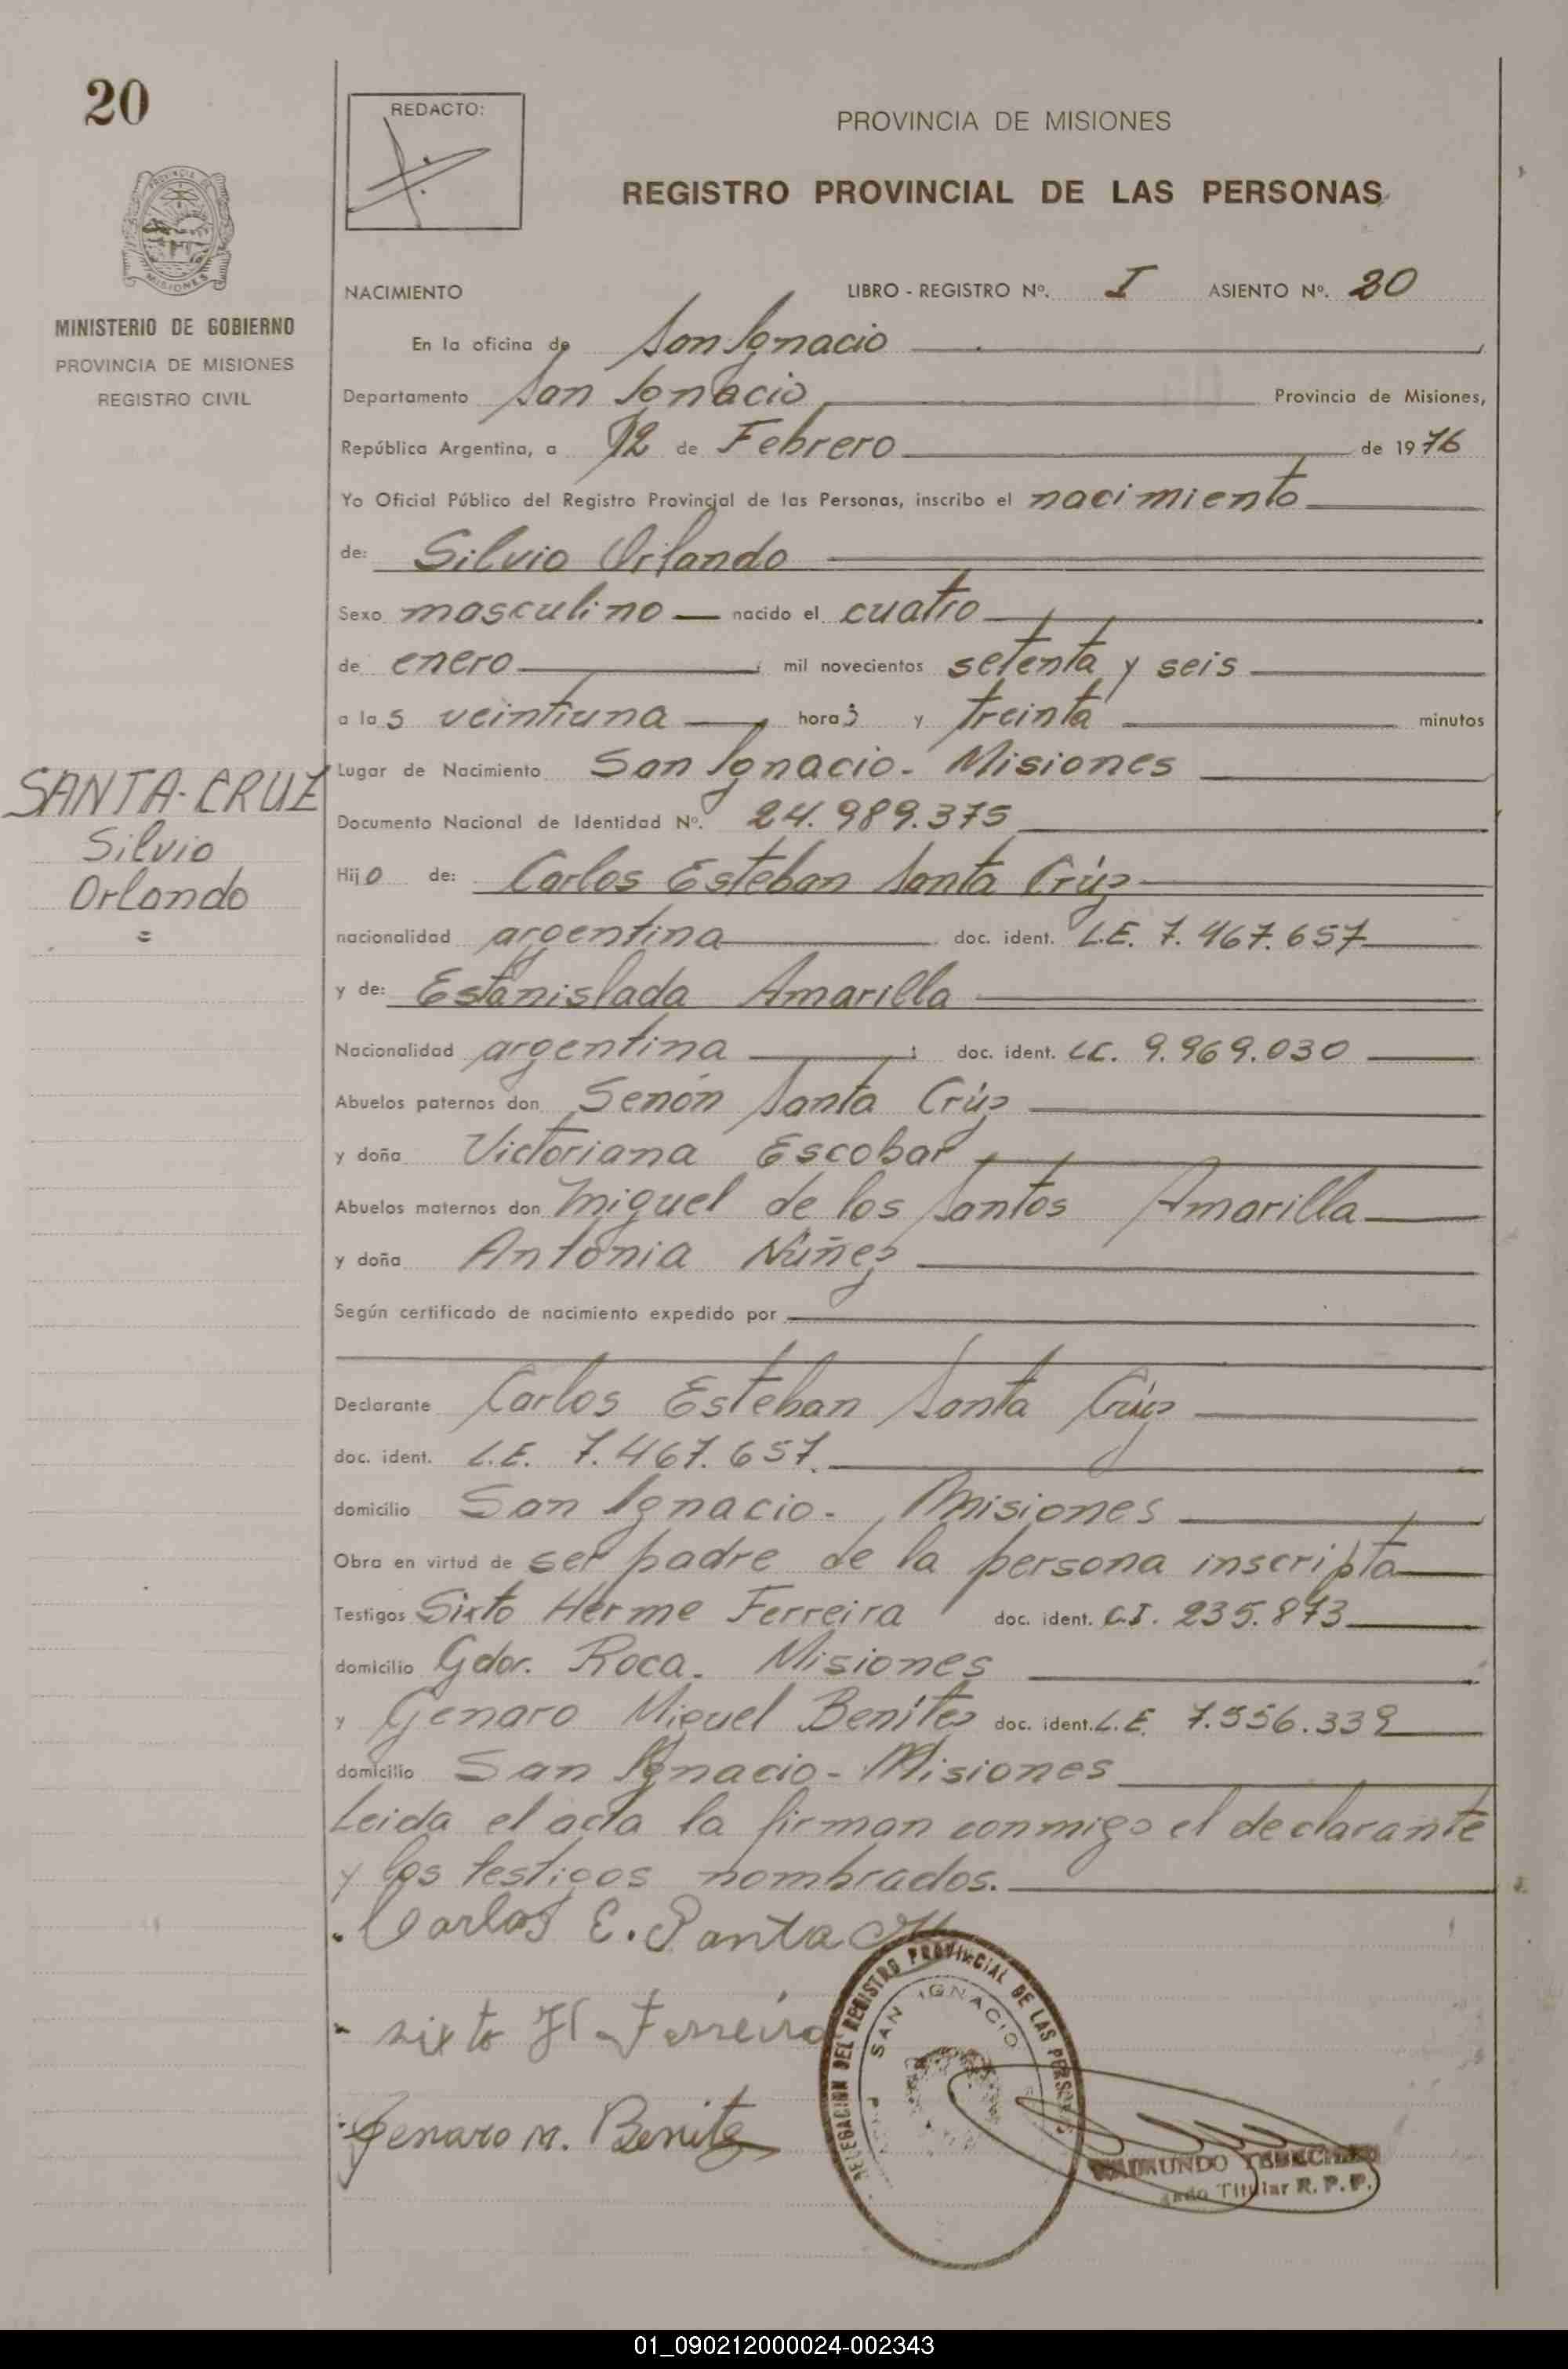 20
REDACTO:
PROVINCIA DE MISIONES
REGISTRO PROVINCIAL DE LAS PERSONAS
PROVINCIA DE
MISIONES
MINISTERIO DE GOBIERNO
PROVINCIA DE MISIONES
REGISTRO CIVIL
NACIMIENTO LIBRO - REGISTRO Nº. I ASIENTO Nº. 20
En la oficina de San Ignacio
Departamento San Ignacio Provincia de Misiones,
República Argentina, a 12 de Febrero de 1976
Yo Oficial Público del Registro Provincial de las Personas, inscribo el nacimiento
de: Silvio Orlando
Sexo masculino nacido el cuatro
de enero mil novecientos setenta y seis
a las veintiuna horas y treinta minutos
Lugar de Nacimiento San Ignacio - Misiones
SANTA-CRUZ
Silvio
Orlando
=
Documento Nacional de Identidad Nº. 24.989.375
Hijo de: Carlos Esteban Santa Crúz
nacionalidad argentina doc. ident. L.E. 7.467.657
y de: Estanislada Amarilla
Nacionalidad argentina ; doc. ident. LC. 9.969.030
Abuelos paternos don Senón Santa Crúz
y doña Victoriana Escobar
Abuelos maternos don Miguel de los Santos Amarilla
y doña Antonia Núñez
Según certificado de nacimiento expedido por
Declarante Carlos Esteban Santa Crúz
doc. ident. L.E. 7.467.657.
domicilio San Ignacio - Misiones
Obra en virtud de ser padre de la persona inscripta
Testigos Sixto Herme Ferreira doc. ident. C.I. 235.873
domicilio Gdor. Roca. Misiones
y Genaro Miguel Benítez doc. ident. L.E. 7.556.339
domicilio San Ignacio - Misiones
Leida el acta la firman conmigo el declarante
y los testigos nombrados.
Carlos E. Santa
sixto H. Ferreira
Genaro M. Benitez
DELEGACION DEL REGISTRO PROVINCIAL DE LAS PERSONAS
SAN IGNACIO
Titular R. P. P.
01_090212000024-002343